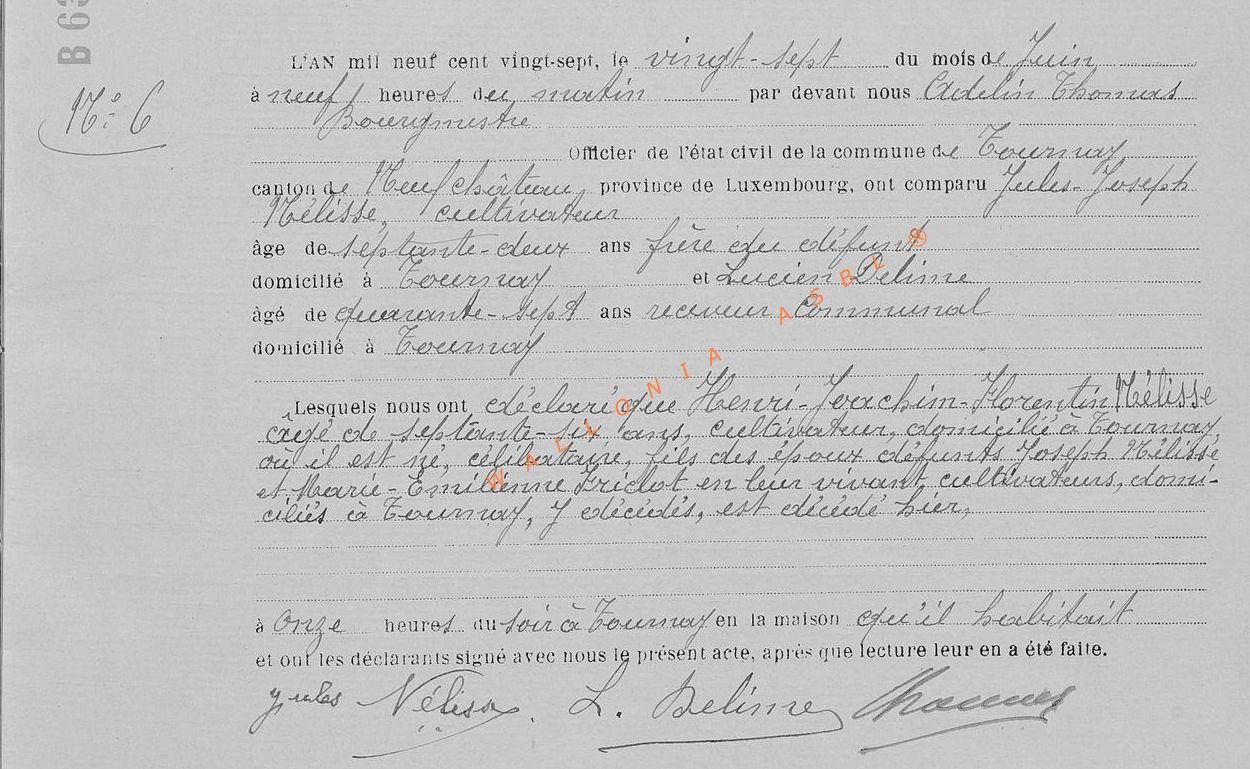 B 63
L'AN mil neuf cent vingt-sept, le vingt-sept du mois de Juin
N° 6
à neuf heures du matin par devant nous Adelin Thomas
Bourgmestre
Officier de l'état civil de la commune de Tournay
canton de Neufchâteau, province de Luxembourg, ont comparu Jules-Joseph
Nélisse, cultivateur
âge de septante-deux ans frère du défunt
domicilié à Tournay et Lucien Belime
âgé de quarante-sept ans receveur Communal
domicilié à Tournay
WALLONIA ASBL ®
Lesquels nous ont déclaré que Henri-Joachim-Florentin Nélisse
âgé de septante-six ans, cultivateur, domicilié à Tournay,
où il est né, célibataire, fils des époux défunts Joseph Nélisse
et Marie-Emilienne en leur vivant cultivateurs, domi-
ciliés à Tournay, y décédés, est décédé hier,
à onze heures du soir à Tournay en la maison qu'il habitait
et ont les déclarants signé avec nous le présent acte, après que lecture leur en a été faite.
Jules Nélisse. L. Belime Thomas